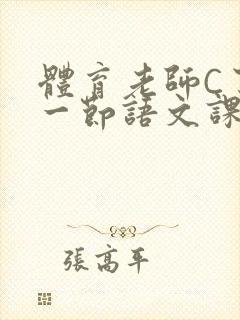 體育老師C
一節語文課
張高平